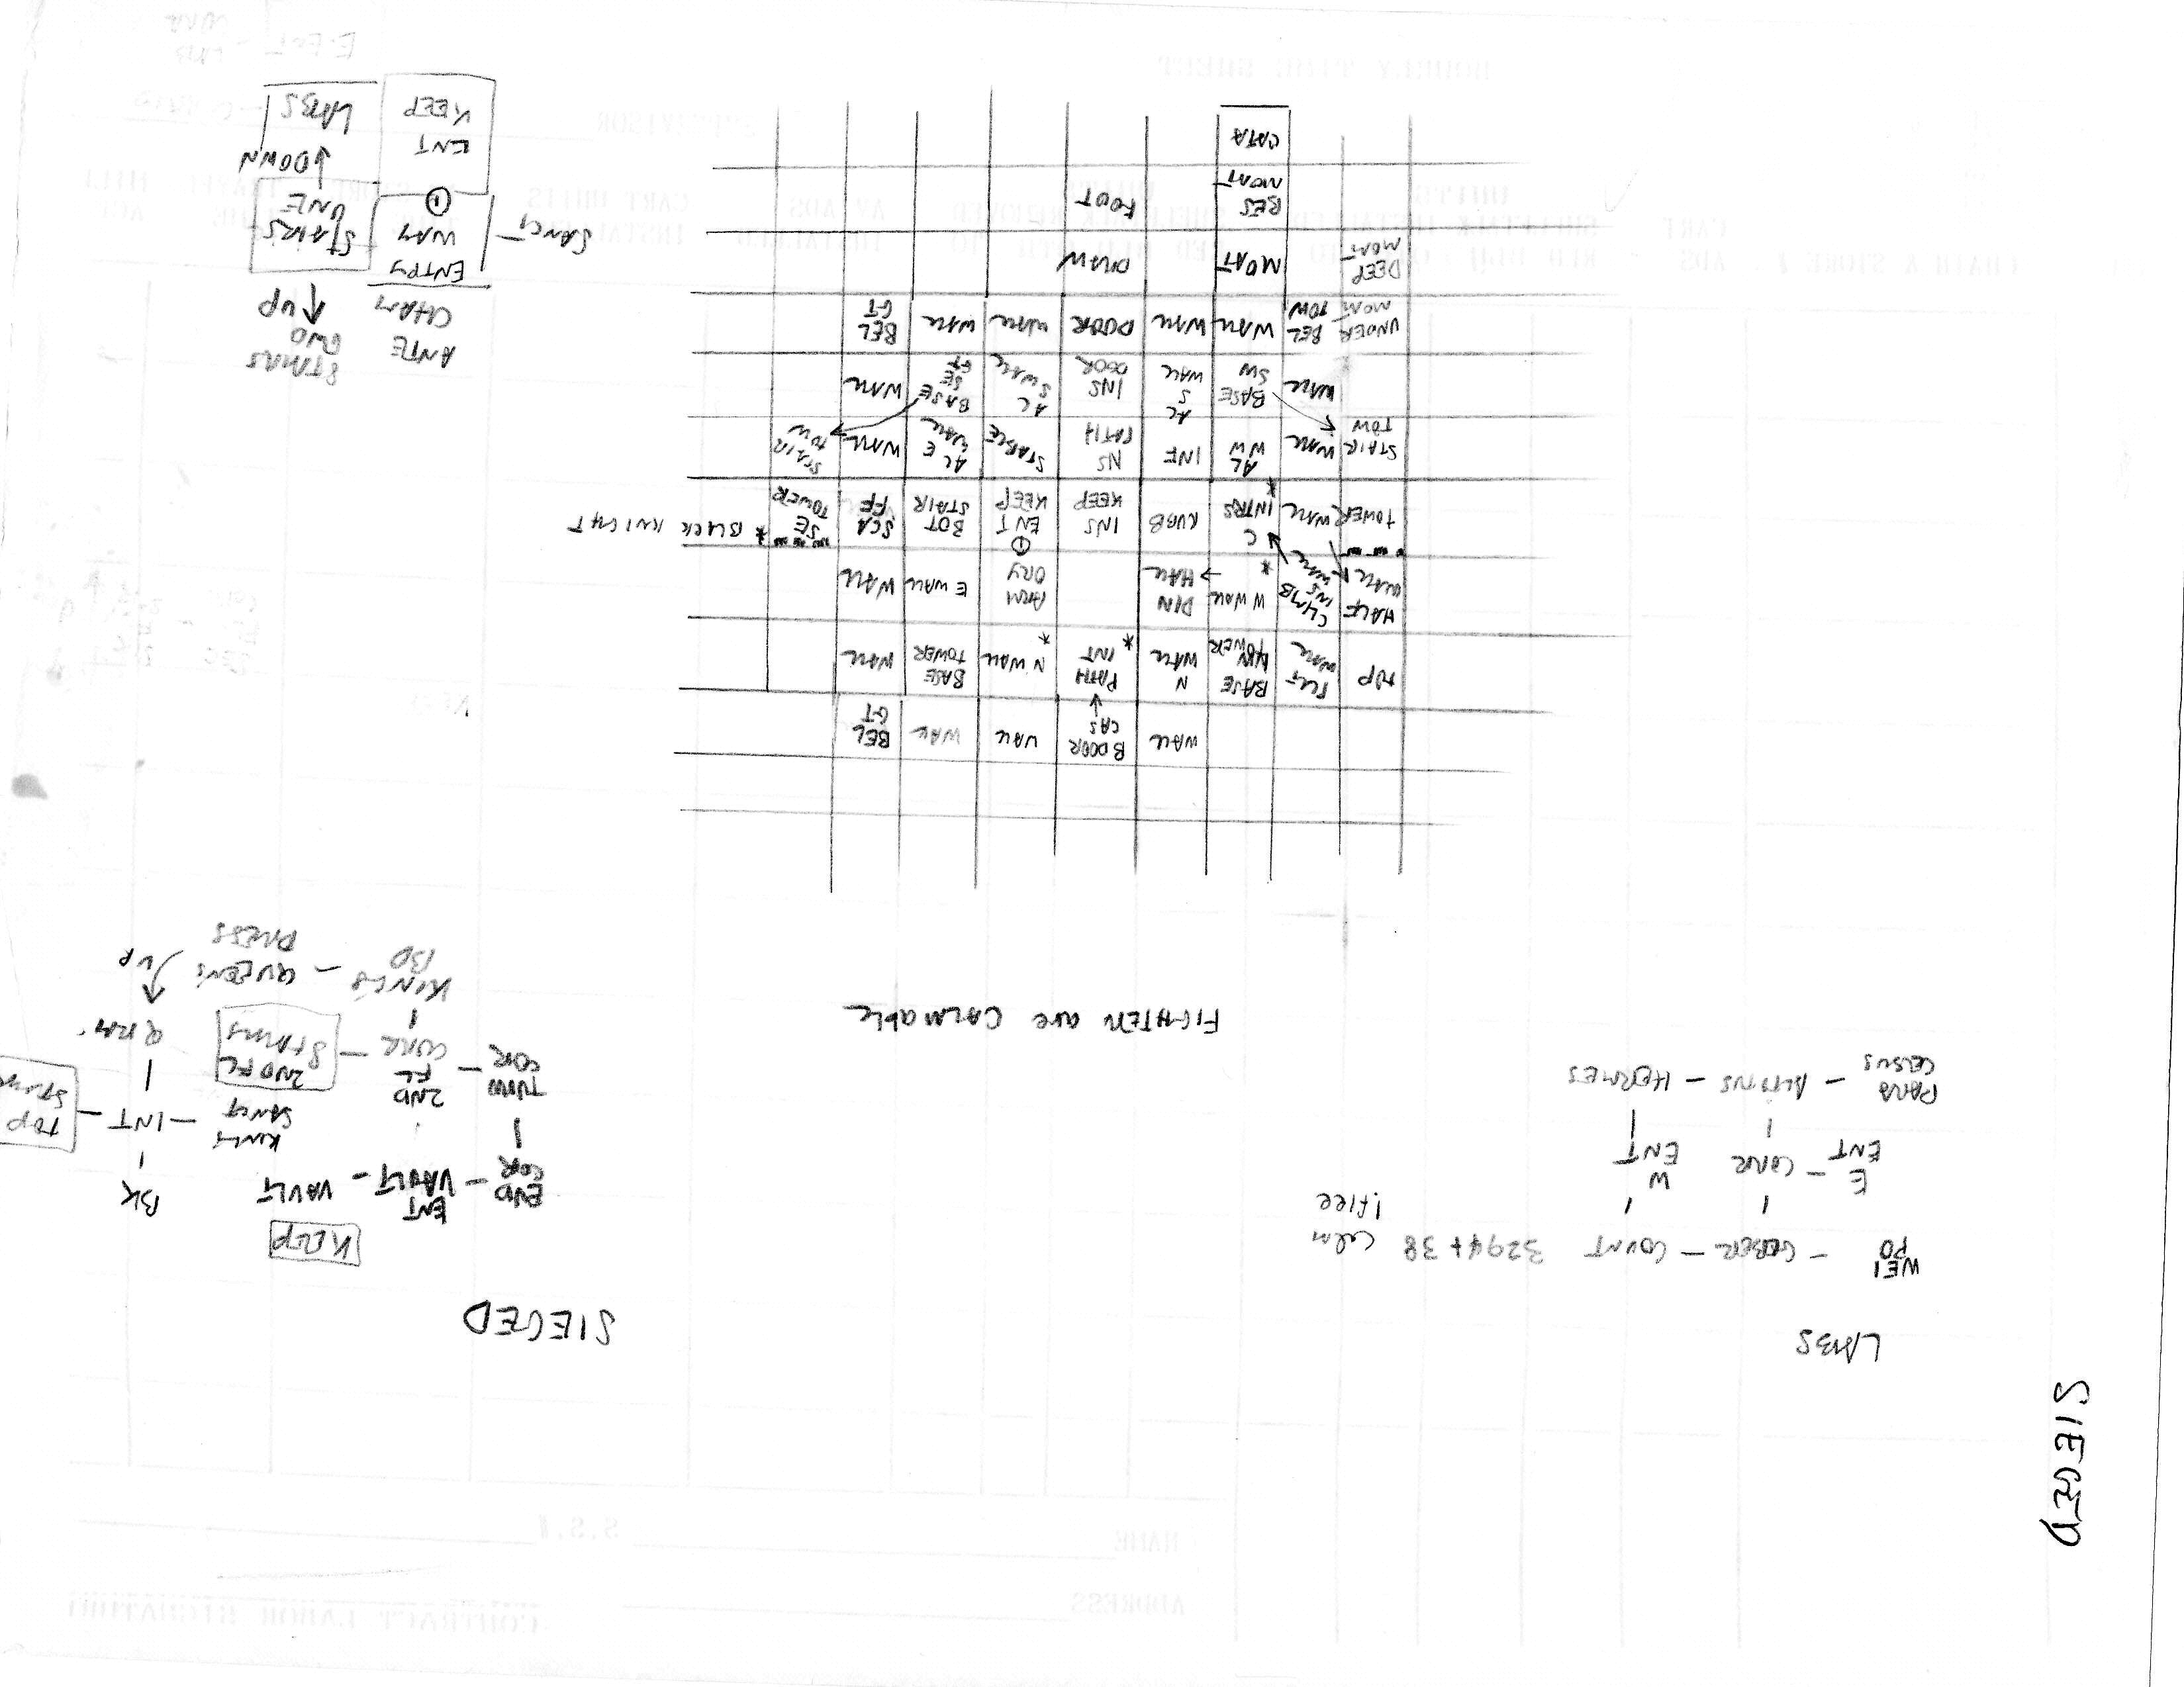 SIEGED
LABS
WEI PO - GEBER - COUNT 3294+38 calm
! flee
E ENT - CORR
W ENT
PARA CELSUS - ALTOTUS - HERMES
SIEGED
KEEP
END COR - ENT VAULT - VAULT
TWW COR - 2ND FL CORR - 2ND FL STAIRS
KING'S BD - QUEEN'S DRESS
UP
BK
KING'S SANCT - INT - TOP STAIRS
Q RM
FIGHTEN are CALMABLE
WALL B DOOR CAS WALL WALL BEL GT
TOP WALL BASE NW TOWER N WALL PATH INT * N WALL * BASE TOWER WALL
HALF WALL CLIMB INS WALL W WALL * DIN HALL ARM ORY E WALL WALL
TOWER WALL C INTRS * RUBB INS KEEP 1 ENT KEEP BOT STAIR SCA FF SE TOWER * BLACK KNIGHT
STAIR TOW WALL AL WW INF NS PATH STABLE AL E WALL WALL STAIR TOW
WALL BASE SW AL S WALL INS DOOR AL S WALL BASE SE GT WALL
UNDER MOAT BEL TOW WALL WALL DOOR WALL WALL BEL GT
DEEP MOAT MOAT DRAW
BES MOAT FOOT
CATA
ANTE CHAM
SANCT - ENTRY WAY
1
ENT KEEP
STAIRS GND
UP
STAIRS UNE
DOWN
LABS